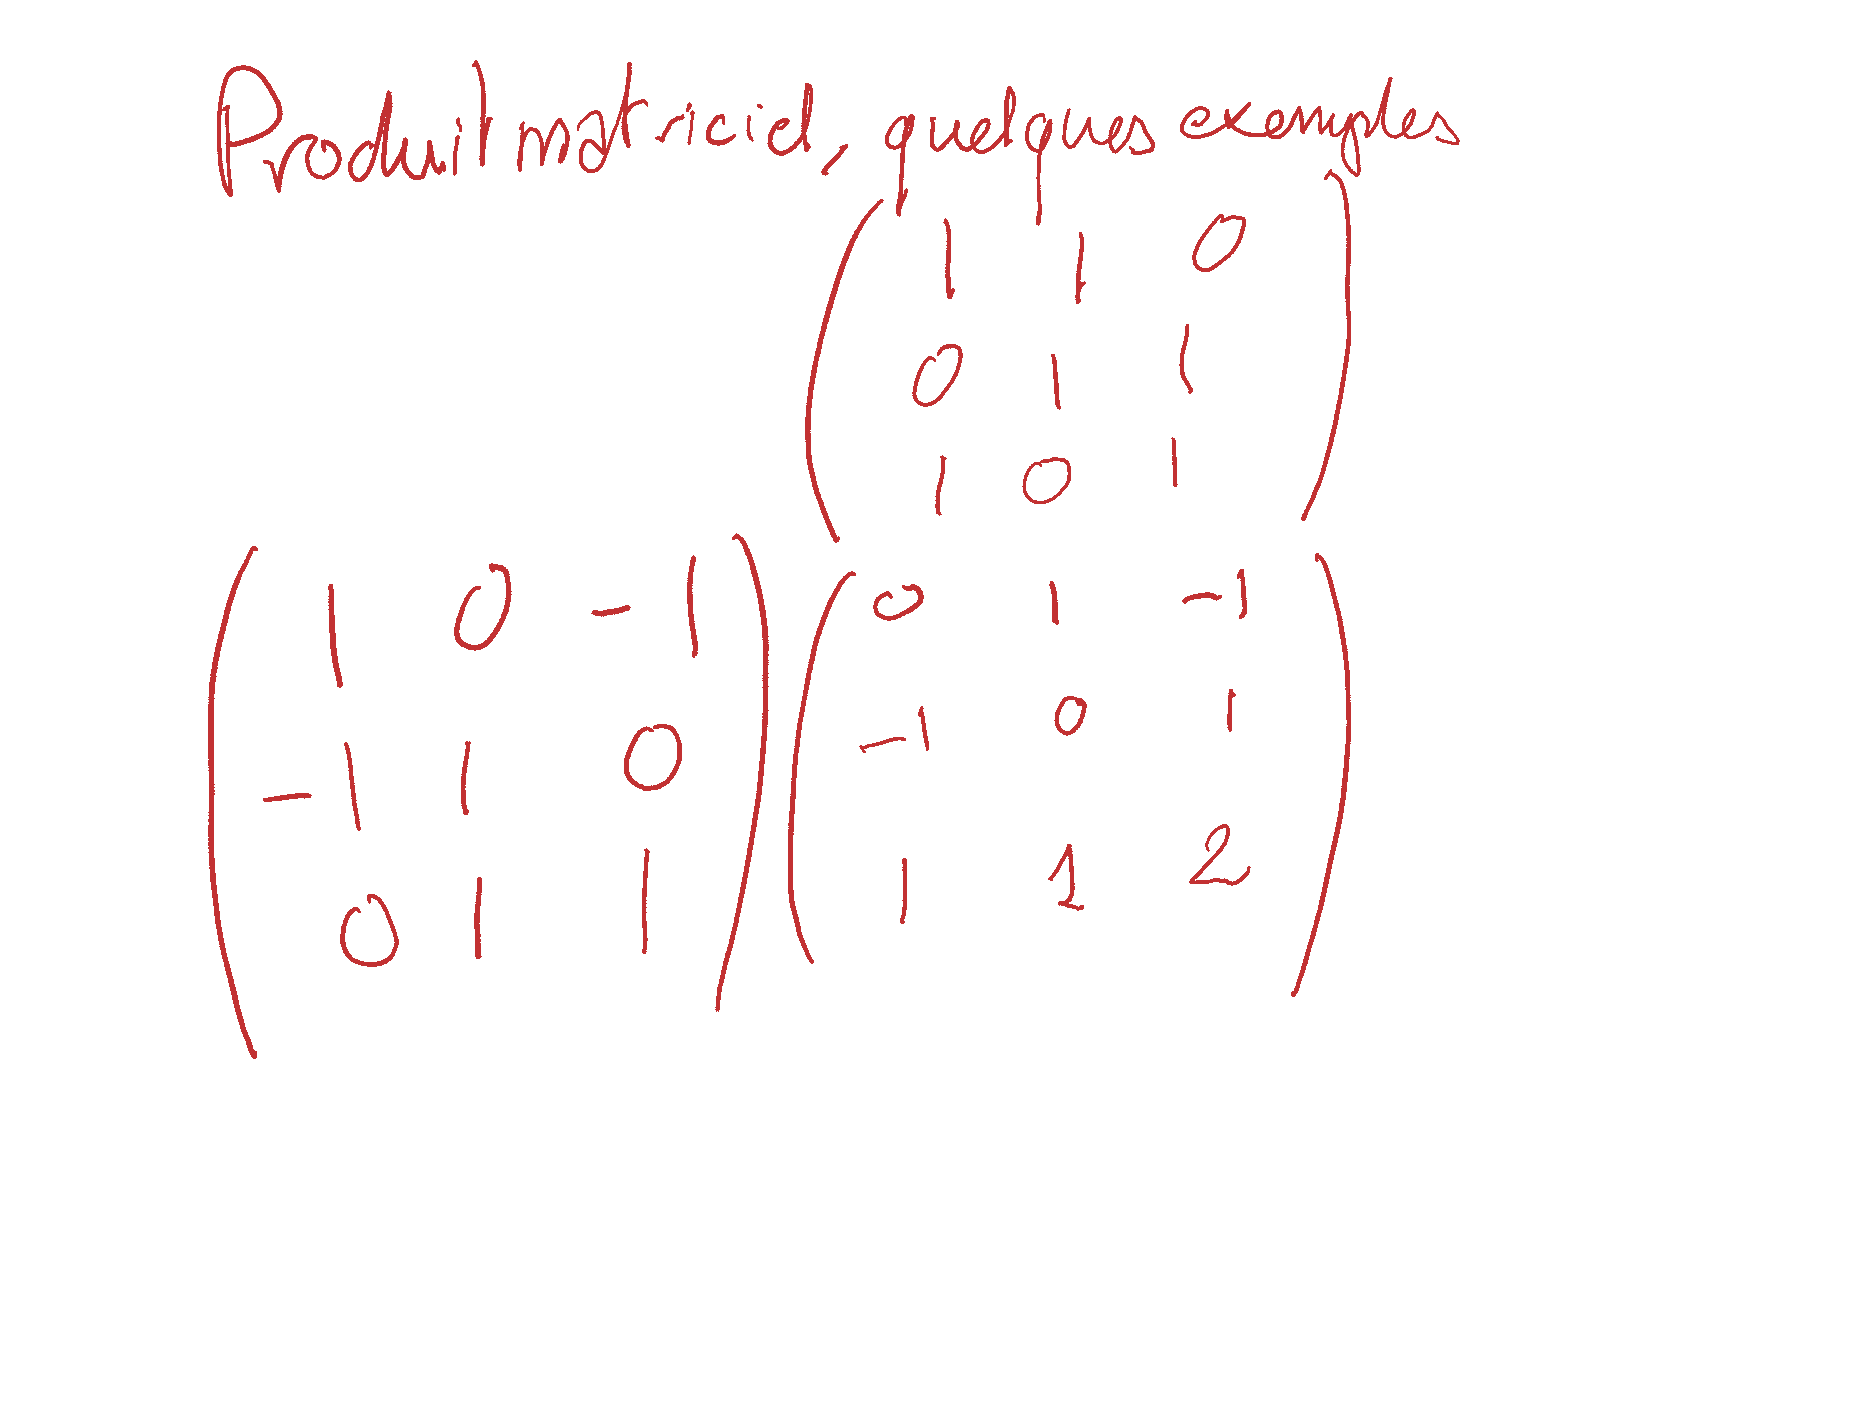 Produit matriciel, quelques exemples
1 1 0
0 1 1
1 0 1
1 0 -1 0 1 -1
-1 1 0 -1 0 1
0 1 1 1 1 2